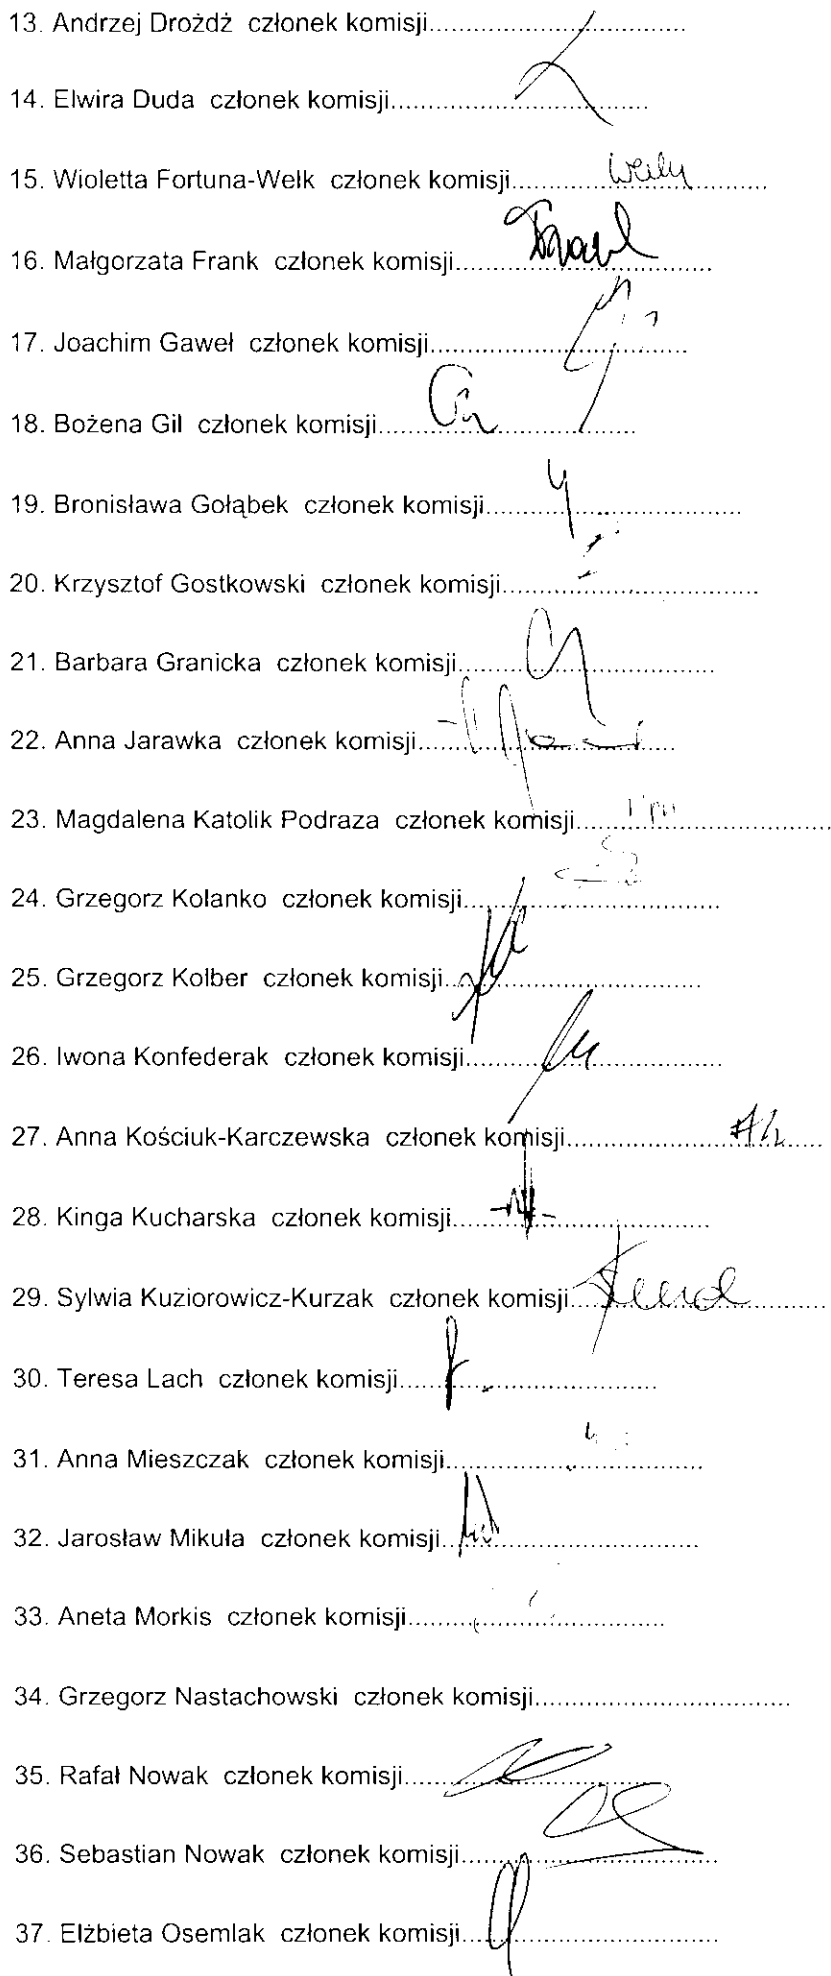 13. Andrzej Drożdż członek komisji..................................
14. Elwira Duda członek komisji..................................
15. Wioletta Fortuna-Welk członek komisji..................................
16. Małgorzata Frank członek komisji..................................
17. Joachim Gaweł członek komisji..................................
18. Bożena Gil członek komisji..................................
19. Bronisława Gołąbek członek komisji..................................
20. Krzysztof Gostkowski członek komisji..................................
21. Barbara Granicka członek komisji..................................
22. Anna Jarawka członek komisji..................................
23. Magdalena Katolik Podraza członek komisji..................................
24. Grzegorz Kolanko członek komisji..................................
25. Grzegorz Kolber członek komisji..................................
26. Iwona Konfederak członek komisji..................................
27. Anna Kościuk-Karczewska członek komisji..................................
28. Kinga Kucharska członek komisji..................................
29. Sylwia Kuziorowicz-Kurzak członek komisji..................................
30. Teresa Lach członek komisji..................................
31. Anna Mieszczak członek komisji..................................
32. Jarosław Mikuła członek komisji..................................
33. Aneta Morkis członek komisji..................................
34. Grzegorz Nastachowski członek komisji..................................
35. Rafał Nowak członek komisji..................................
36. Sebastian Nowak członek komisji..................................
37. Elżbieta Osemlak członek komisji..................................